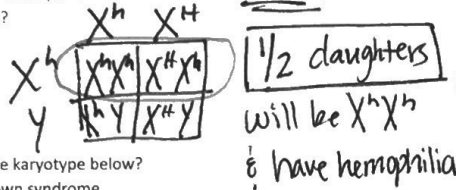 ?
X^h X^H
X^h X^hX^h X^HX^h
Y X^hY X^HY
1/2 daughters
will be X^hX^h
& have hemophilia
e karyotype below?
wn syndrome